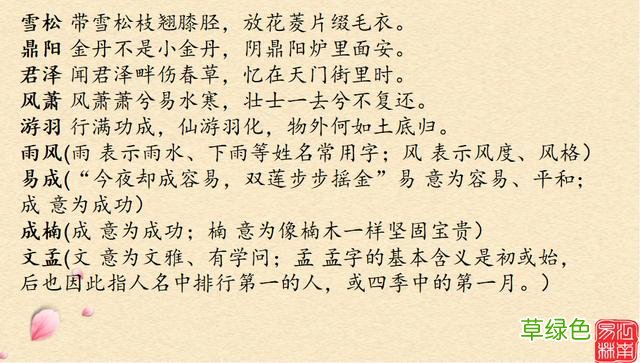 雪松 带雪松枝翘膝胫，放花菱片缀毛衣。
鼎阳 金丹不是小金丹，阴鼎阳炉里面安。
君泽 闻君泽畔伤春草，忆在天门街里时。
风萧 风萧萧兮易水寒，壮士一去兮不复还。
游羽 行满功成，仙游羽化，物外何如土底归。
雨风(雨 表示雨水、下雨等姓名常用字；风 表示风度、风格）
易成(“今夜却成容易，双莲步步摇金”易 意为容易、平和；
成 意为成功）
成楠(成 意为成功；楠 意为像楠木一样坚固宝贵）
文孟(文 意为文雅、有学问；孟 孟字的基本含义是初或始，
后也因此指人名中排行第一的人，或四季中的第一月。）
草绿色
江南易林